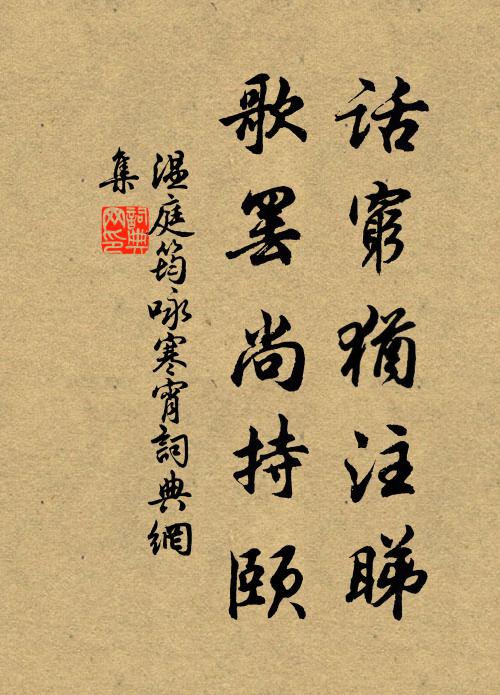 话穷犹注睇
歌罢尚持颐
温庭筠咏寒宵詞典網
集
詞典网印